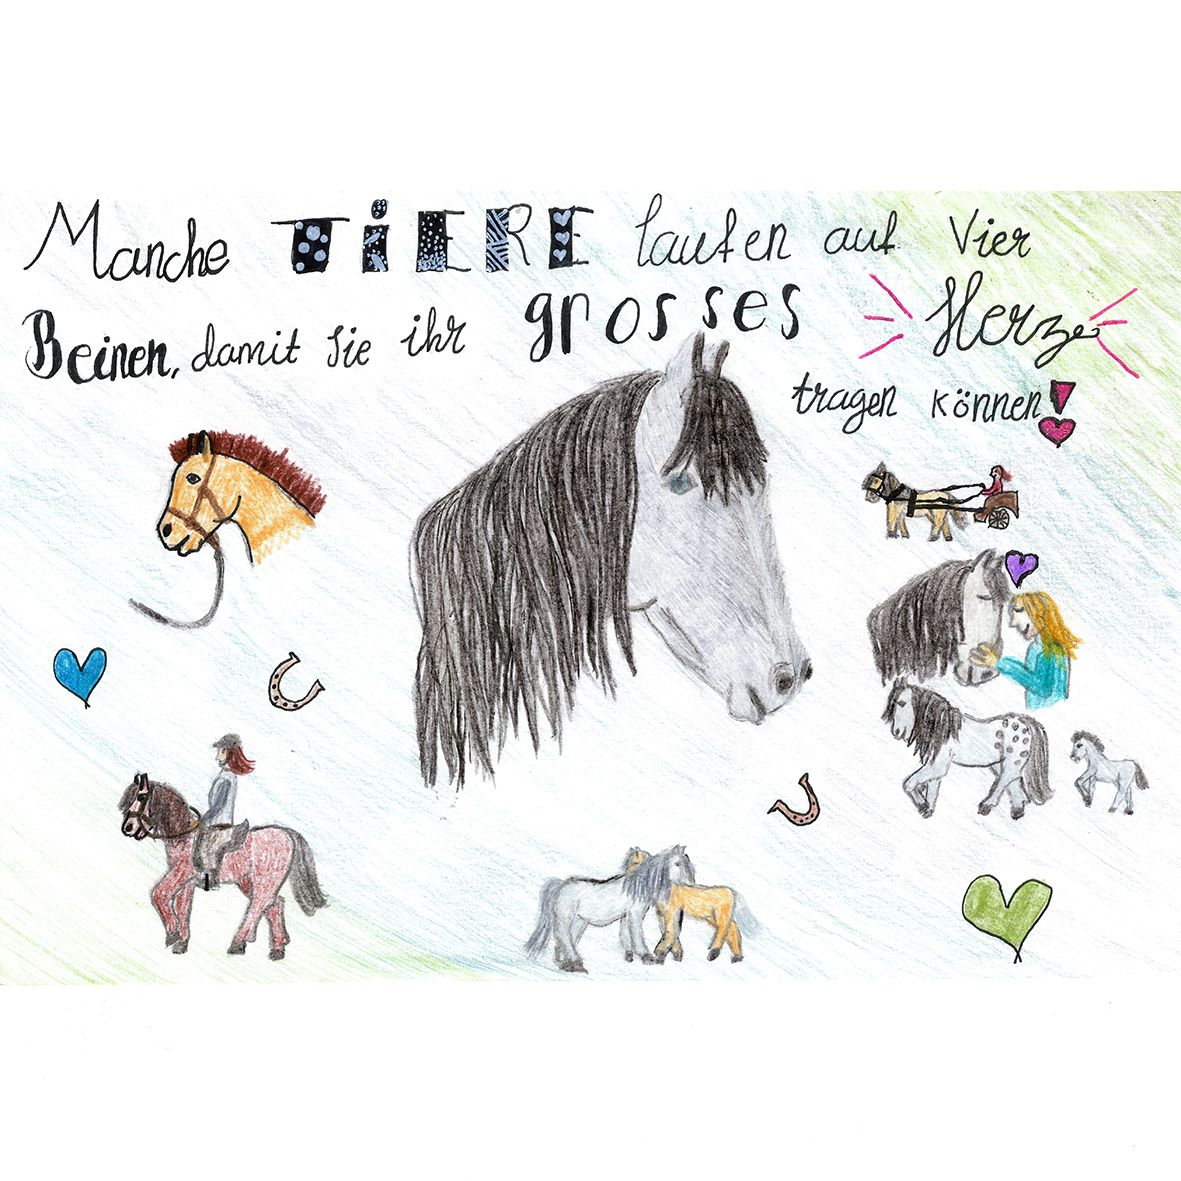 Manche TiERE laufen auf Vier
Beinen, damit Sie ihr grosses Herze
tragen können!